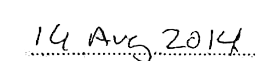 14 Aug 2014